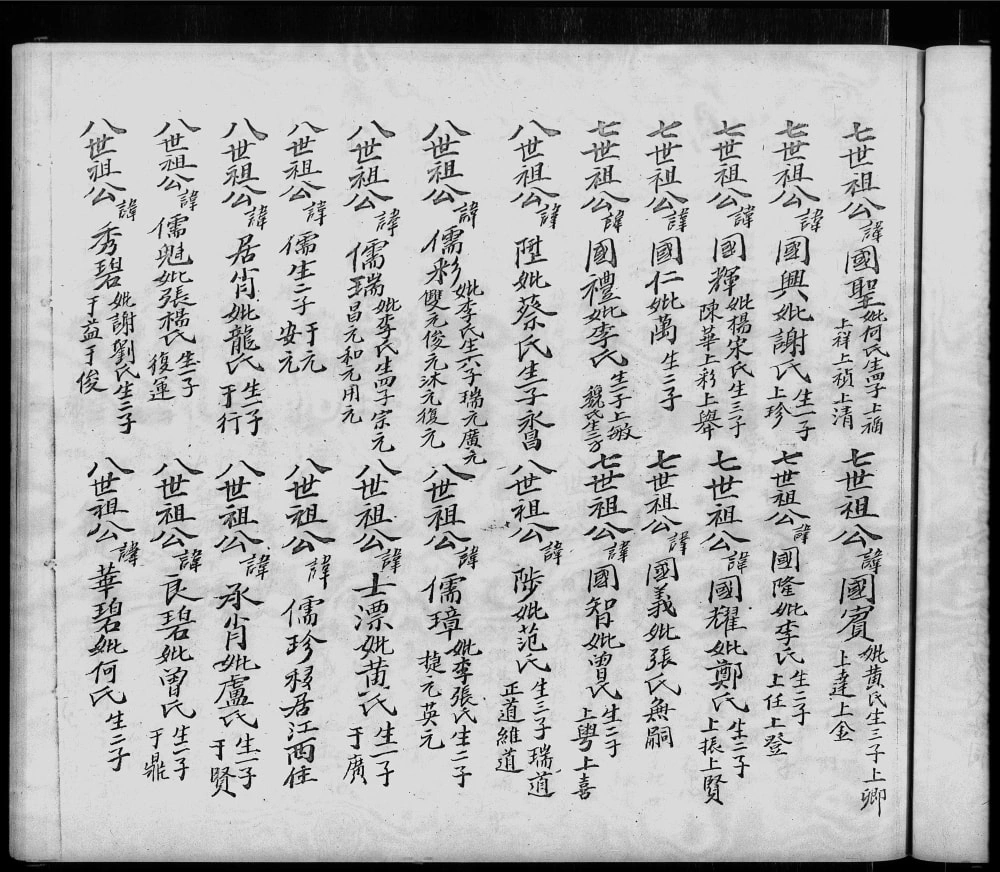 七世祖公諱國聖妣何氏生四子上福上祥上禎上清
七世祖公諱國賓妣黃氏生三子上卿上達上金
七世祖公諱國興妣謝氏生一子上珍
七世祖公諱國隆妣李氏生二子上任上登
七世祖公諱國輝妣楊宋氏生三子陳華上彩上舉
七世祖公諱國耀妣鄭氏生二子上振上賢
七世祖公諱國仁妣萬生二子
七世祖公諱國義妣張氏無嗣
七世祖公諱國禮妣李氏生一子上敏魏氏生二子
七世祖公諱國智妣曾氏生二子上粵上喜
八世祖公諱陞妣蔡氏生一子永昌
八世祖公諱陟妣范氏生三子瑞道正道維道
八世祖公諱儒彩妣李氏生六子瑞元廣元雙元俊元沐元復元
八世祖公諱儒璋妣李張氏生二子捷元英元
八世祖公諱儒瑞妣李氏生四子宗元昌元和元用元
八世祖公諱士漂妣黃氏生一子于廣
八世祖公諱儒生二子于元安元
八世祖公諱儒珍移居江西住
八世祖公諱居肖妣龍氏生一子于行
八世祖公諱承肖妣盧氏生一子于賢
八世祖公諱儒魁妣張楊氏生一子復運
八世祖公諱良碧妣曾氏生一子于鼎
八世祖公諱秀碧妣謝劉氏生二子于益于俊
八世祖公諱華碧妣何氏生二子